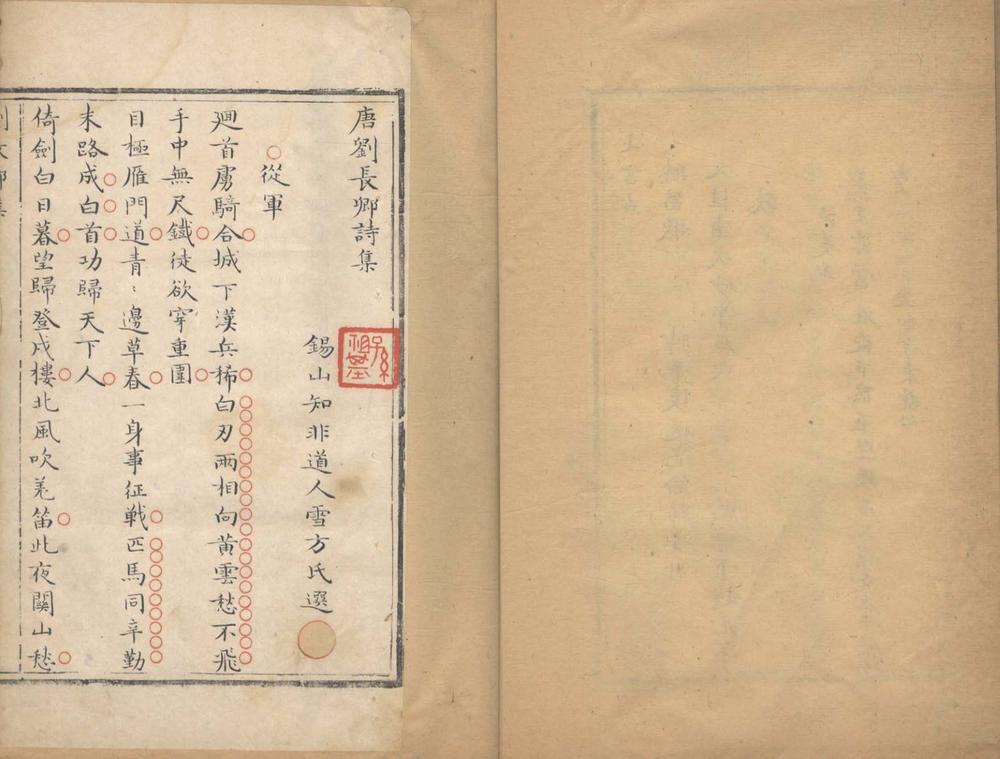 唐劉長卿詩集
錫山知非道人雪方氏選
從軍
廻首虜騎合城下漢兵稀白刃兩相向黃雲愁不飛
手中無尺鐵徒欲穿重圍
目極雁門道青〻邊草春一身事征戰匹馬同辛勤
末路成白首功歸天下人
倚劍白日暮望歸登戍樓北風吹羌笛此夜關山愁